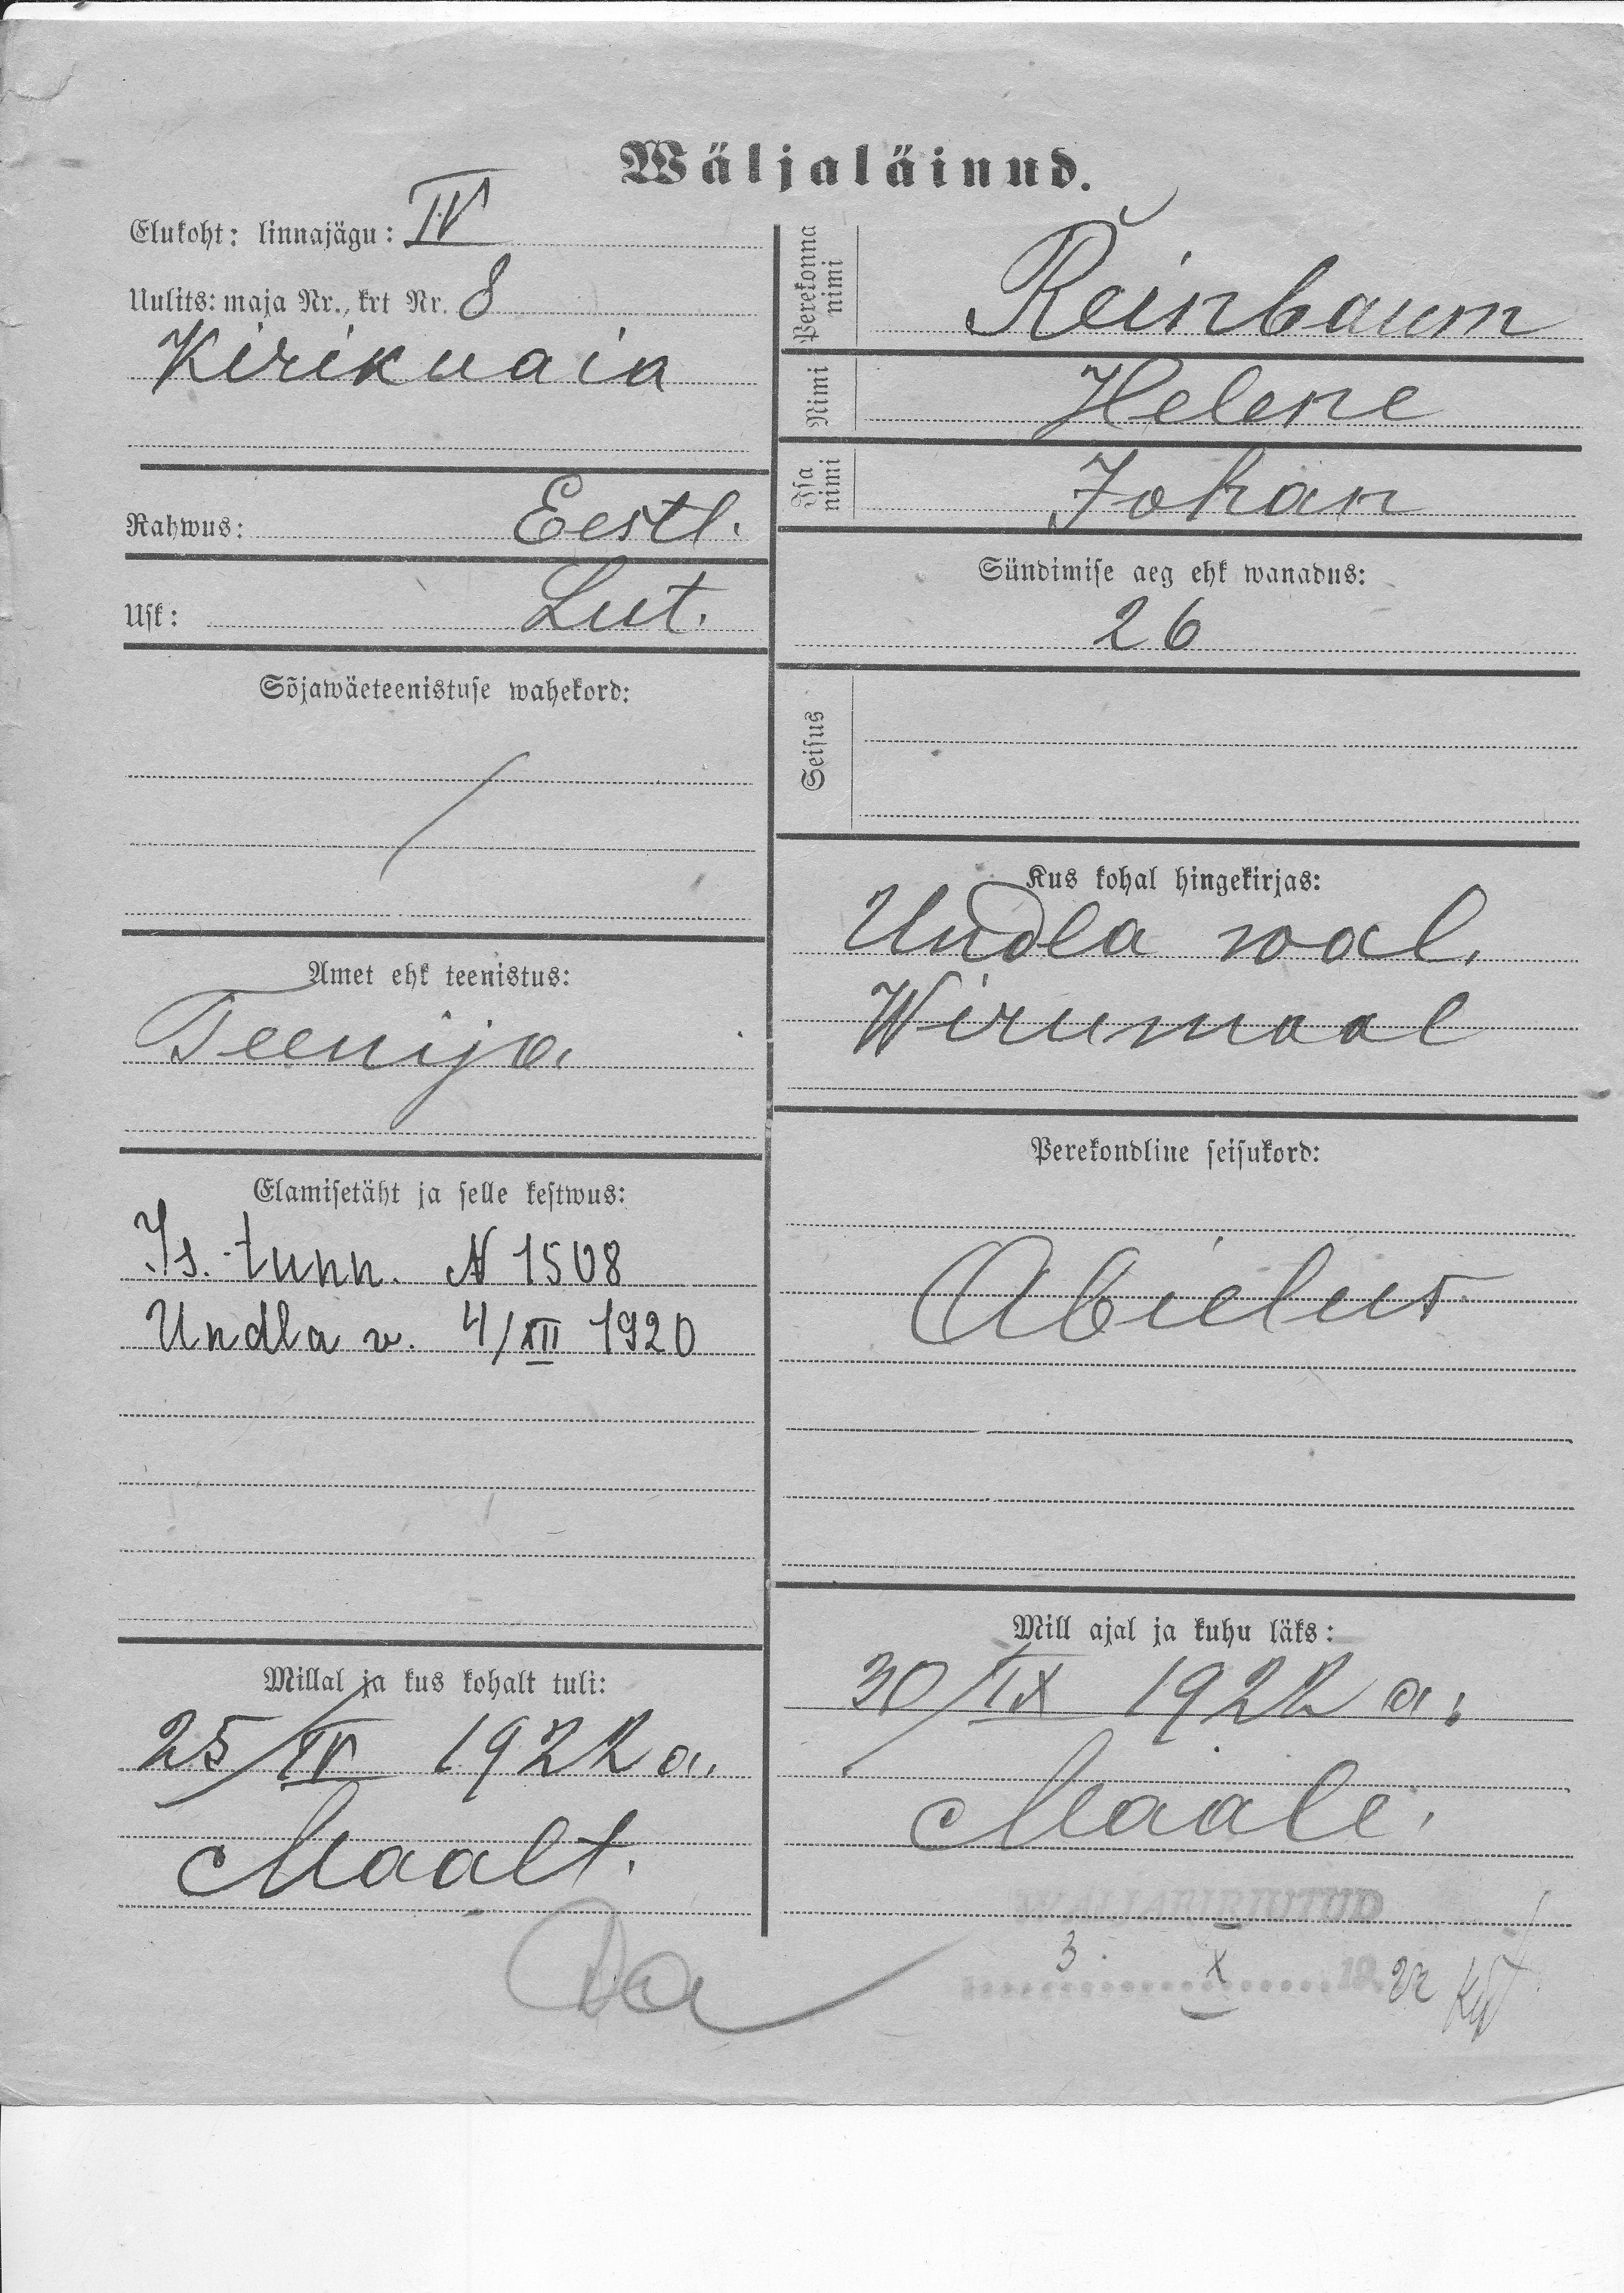 Wäljaläinud.
Elukoht: linnajägu: IV
Uulits: maja Nr., krt Nr. 8
Kirikuaia
Rahwus: Eestl.
Usk: Lut.
Sõjawäeteenistuse wahekord:
Amet ehk teenistus:
Teenija.
Elamisetäht ja selle kestwus:
Is. tunn. N 1508
Undla v. 4/XII 1920
Millal ja kus kohalt tuli:
25/IV 1922 a.
Maalt.
Perekonna nimi
Reinbaum
Nimi
Helene
Isa nimi
Johan
Sündimise aeg ehk wanadus:
26
Seisus
Kus kohal hingekirjas:
Undla wal.
Wirumaal
Perekondline seisukord:
Abielus
Mill ajal ja kuhu läks:
30/IX 1922 a.
Maale.
3. X 1922